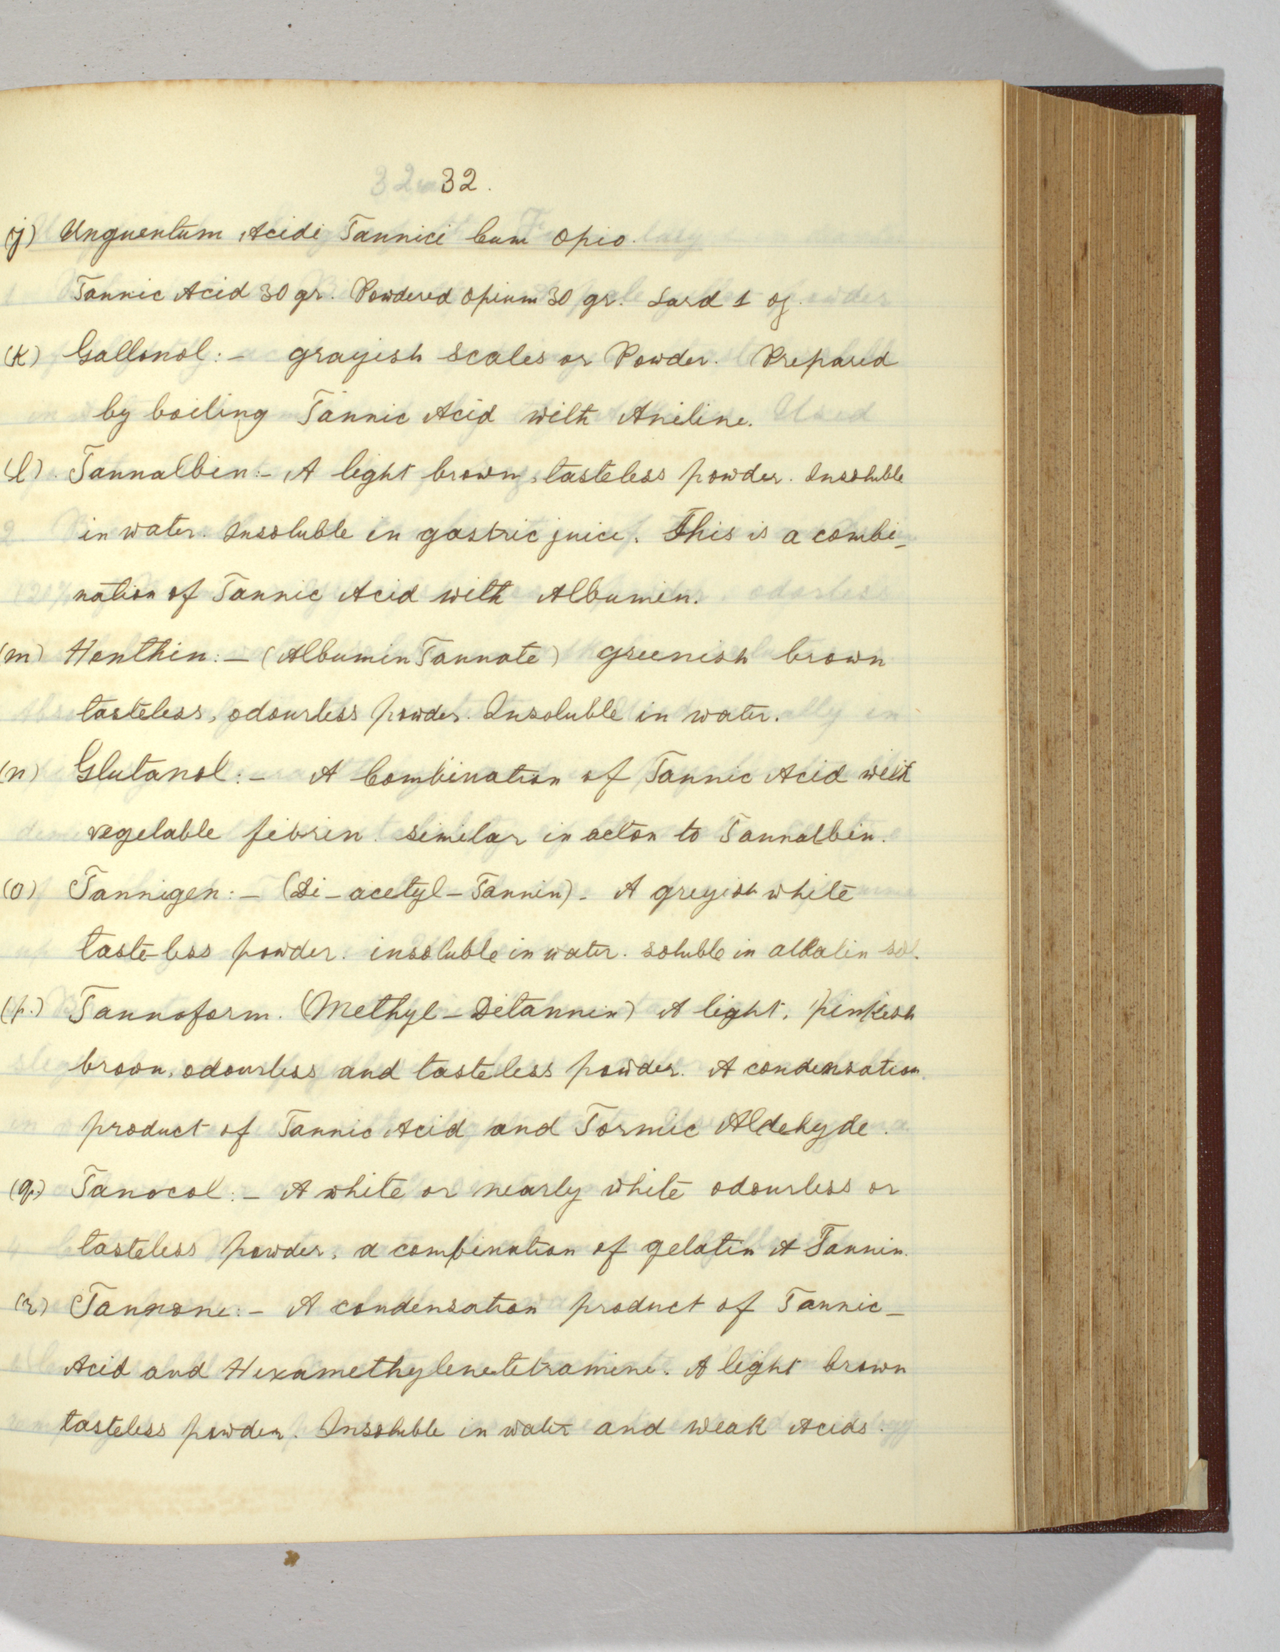 32.
(j) Unguentum Acidi Tannici Cum Opio.
Tannic Acid 30 gr. Powdered Opium 30 gr. Lard 1 oz.
(k) Gallonol:- grayish scales or Powder. Prepared
by boiling Tannic Acid with Aniline.
(l). Tannalbin:- A light brown, tasteless powder. Insoluble
in water. Insoluble in gastric juice. This is a combi-
nation of Tannic Acid with Albumin.
(m) Honthin:- (Albumin Tannate) greenish brown
tasteless, odourless powder. Insoluble in water.
(n) Glutanol:- A Combination of Tannic Acid with
vegetable fibrin similar in acton to Tannalbin.
(o) Tannigen:- (Di-acetyl-Tannin)- A greyish white
taste-less powder. insoluble in water. soluble in alkalin sol.
(p.) Tannoform. (Methyl-Ditannin) A light, pinkish
broon, odourless and tasteless powder. A condensation
product of Tannic Acid and Formic Aldehyde.
(q.) Tanocol:- A white or nearly white odourless or
tasteless powder, a combination of gelatin & Tannin.
(r) Tannone:- A condensation product of Tannic-
Acid and Hexamethylenetetramine. A light brown
tasteless powder. Insoluble in water and weak Acids.